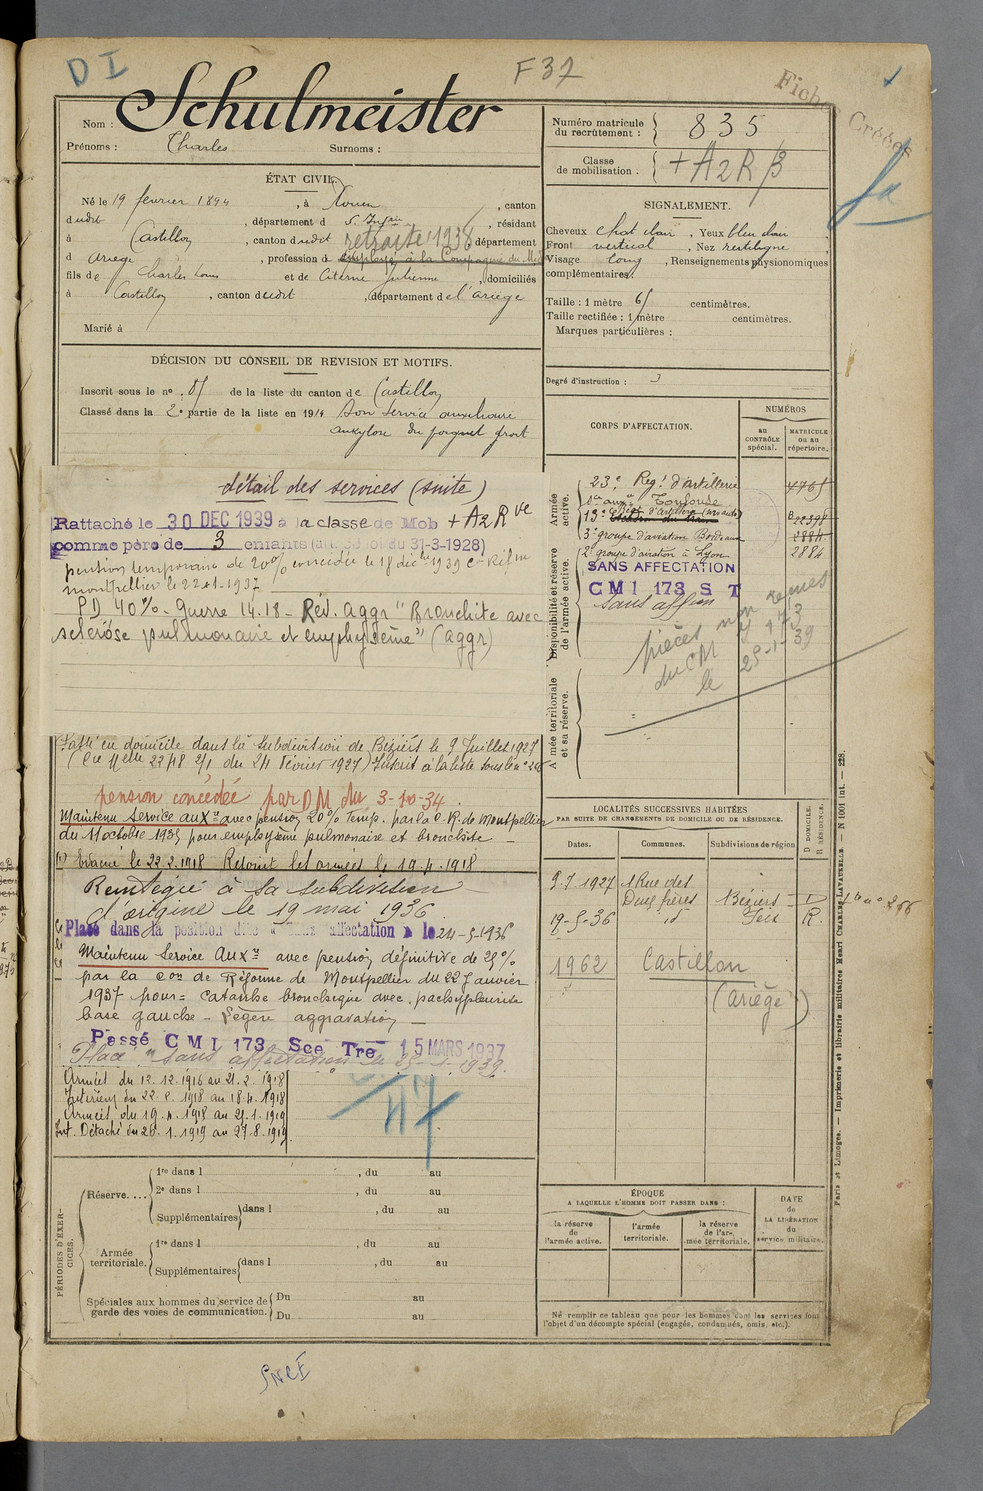 D I
F 37
Fiches Créées
Nom : Schulmeister
Prénoms : Charles Surnoms :
Numéro matricule du recrutement : 835
Classe de mobilisation : + A2R β
ÉTAT CIVIL.
Né le 19 février 1894, à Rouen, canton
dudit, département d S. Infre, résidant
à Castillon, canton dudit retraité 1938 département
d Ariège, profession d employé à la Compagnie du Midi
fils de Charles Louis et de Citerne Julienne, domiciliés
à Castillon, canton dudit, département de l'ariège
Marié à
SIGNALEMENT.
Cheveux chat clair, Yeux bleu clair
Front vertical, Nez rectiligne
Visage long, Renseignements physionomiques
complémentaires:
Taille : 1 mètre 65 centimètres.
Taille rectifiée : 1 mètre centimètres.
Marques particulières :
Degré d'instruction : 3
DÉCISION DU CONSEIL DE REVISION ET MOTIFS.
Inscrit sous le nº de la liste du canton de Castillon
Classé dans la 2e partie de la liste en 1914 Bon service auxiliaire
ankylose du poignet droit
détail des services (suite)
Rattaché le 30 DEC 1939 à la classe de Mob + A2 R ve
comme père de 3 enfants ( du 31-3-1928)
pension temporaire de 20% concédée le 18 déc 1939 C. Réfme
montpellier le 22-1-1937
PD 40% - Guerre 14.18 - Rév. aggr "Bronchite avec
sclérose pulmonaire et emphysème" (aggr)
Passé en domicile dans la Subdivision de Béziers le 9 Juillet 1927
du 24 Février 1927) Inscrit à la liste sous le n°
pension concédée par DM du 3-10-34
Maintenu Service auxre avec pension 20% Temp. par la C.R. de Montpellier
du 11 octobre 1935 pour emphysème pulmonaire et bronchite
(1) Evacué le 22.2.1918 Rejoint les armées le 19.4.1918
Réintégré à la subdivision
d'origine le 19 mai 1936
Placé dans la position dite "sans affectation" le 24-5-1936
Maintenu Service Auxre avec pension définitive de 25%
par la Con de Réforme de Montpellier du 22 Janvier
1937 pour = catarrhe bronchique avec pachypleurite
base gauche - légère aggravation
Passé CMI 173 Sce Tre 15 MARS 1937
Placé "sans affectation" le 25-1-1939.
Armées du 12.12.1916 au 21.2.1918
Intérieur du 22.2.1918 au 18.4.1918
Armées du 19.4.1918 au 21.1.1919
Int. Détaché du 1.1919 au 27.8.1919
47
CORPS D'AFFECTATION.
NUMÉROS
au CONTRÔLE spécial.
MATRICULE ou au répertoire.
Armée active.
23e Régt d'artillerie
Toulouse
3e groupe d'aviation Bordeaux
Disponibilité et réserve de l'armée active.
2e groupe d'aviation à Lyon 2884
SANS AFFECTATION
CMI 173 S T
Sans affon
pièces non remues
du CM 173
le 25-1-39
Armée territoriale et sa réserve.
LOCALITÉS SUCCESSIVES HABITÉES
PAR SUITE DE CHANGEMENTS DE DOMICILE OU DE RÉSIDENCE.
Dates. Communes. Subdivisions de région D DOMICILE. R RÉSIDENCE.
9-7 1927 1 Rue des
Deux frères Béziers D
19-5-36 id Foix R.
1962 Castillon
(Ariège)
PÉRIODES D'EXERCICES.
Réserve....
1re dans l , du au
2e dans l , du au
Supplémentaires dans l , du au
Armée territoriale.
1re dans l , du au
Supplémentaires dans l , du au
Spéciales aux hommes du service de garde des voies de communication.
Du au
Du au
ÉPOQUE
A LAQUELLE L'HOMME DOIT PASSER DANS :
la réserve de l'armée active.
l'armée territoriale.
la réserve de l'armée territoriale.
DATE de LA LIBÉRATION du service militaire.
Ne remplir ce tableau que pour les hommes dont les services font
l'objet d'un décompte spécial (engagés, condamnés, omis, etc.).
Paris et Limoges. — Imprimerie et librairie militaires Henri CHARLES-LAVAUZELLE. — N 1001 int. — 228.
SNCF